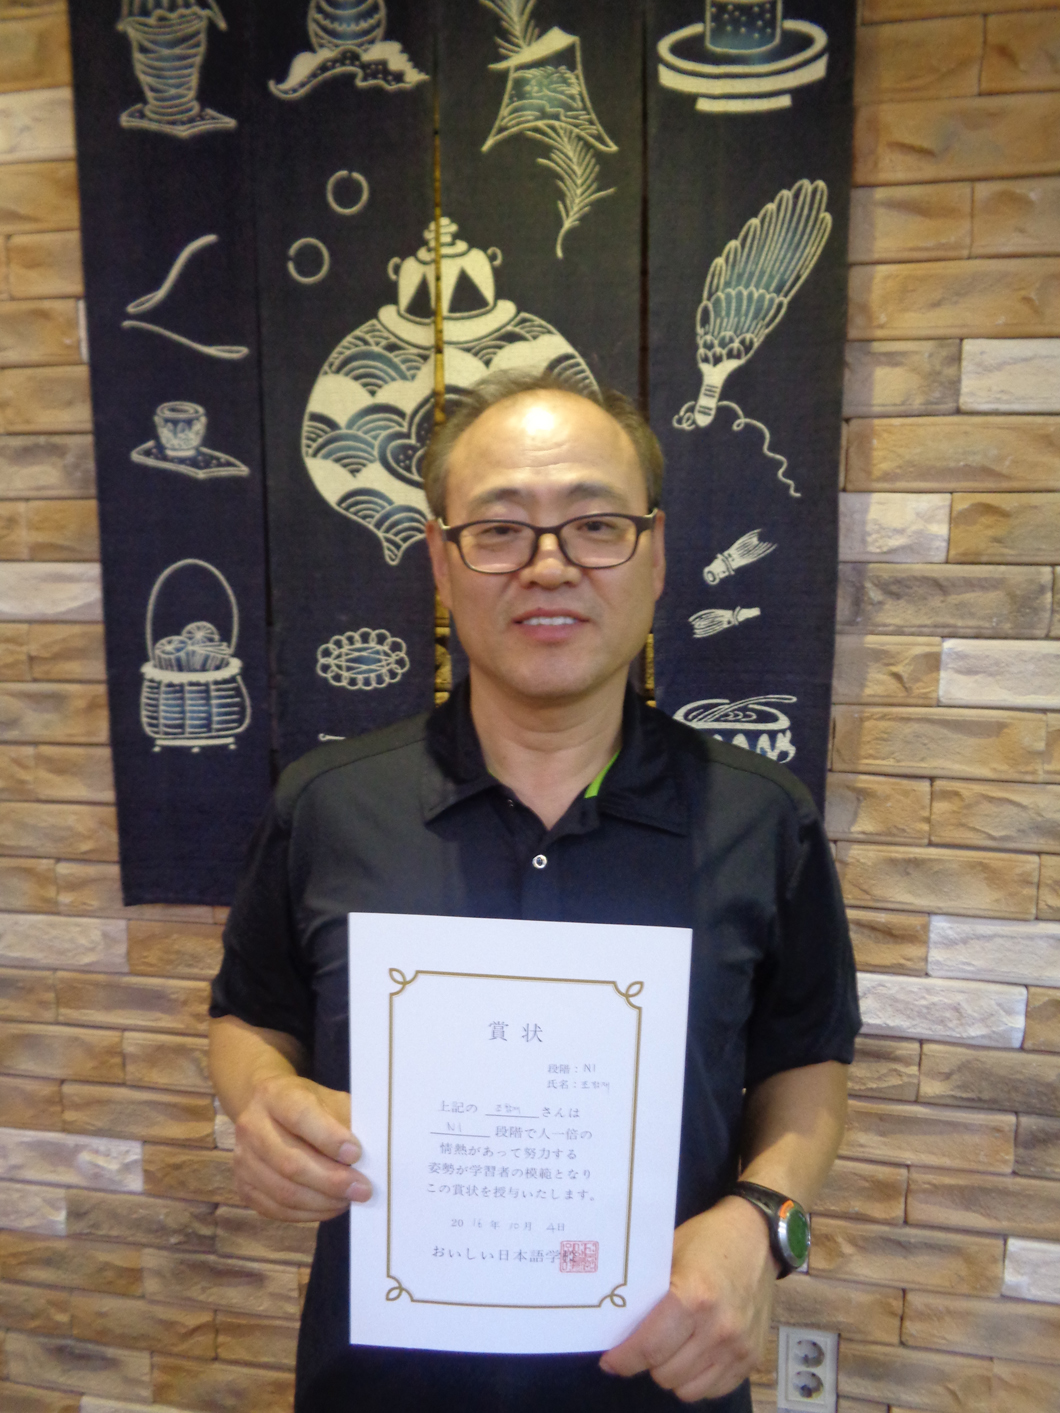 賞状
段階：N1
氏名：
上記の さんは
N1 段階で人一倍の
情熱があって努力する
姿勢が学習者の模範となり
この賞状を授与いたします。
20 年 10月 4日
おいしい日本語学校